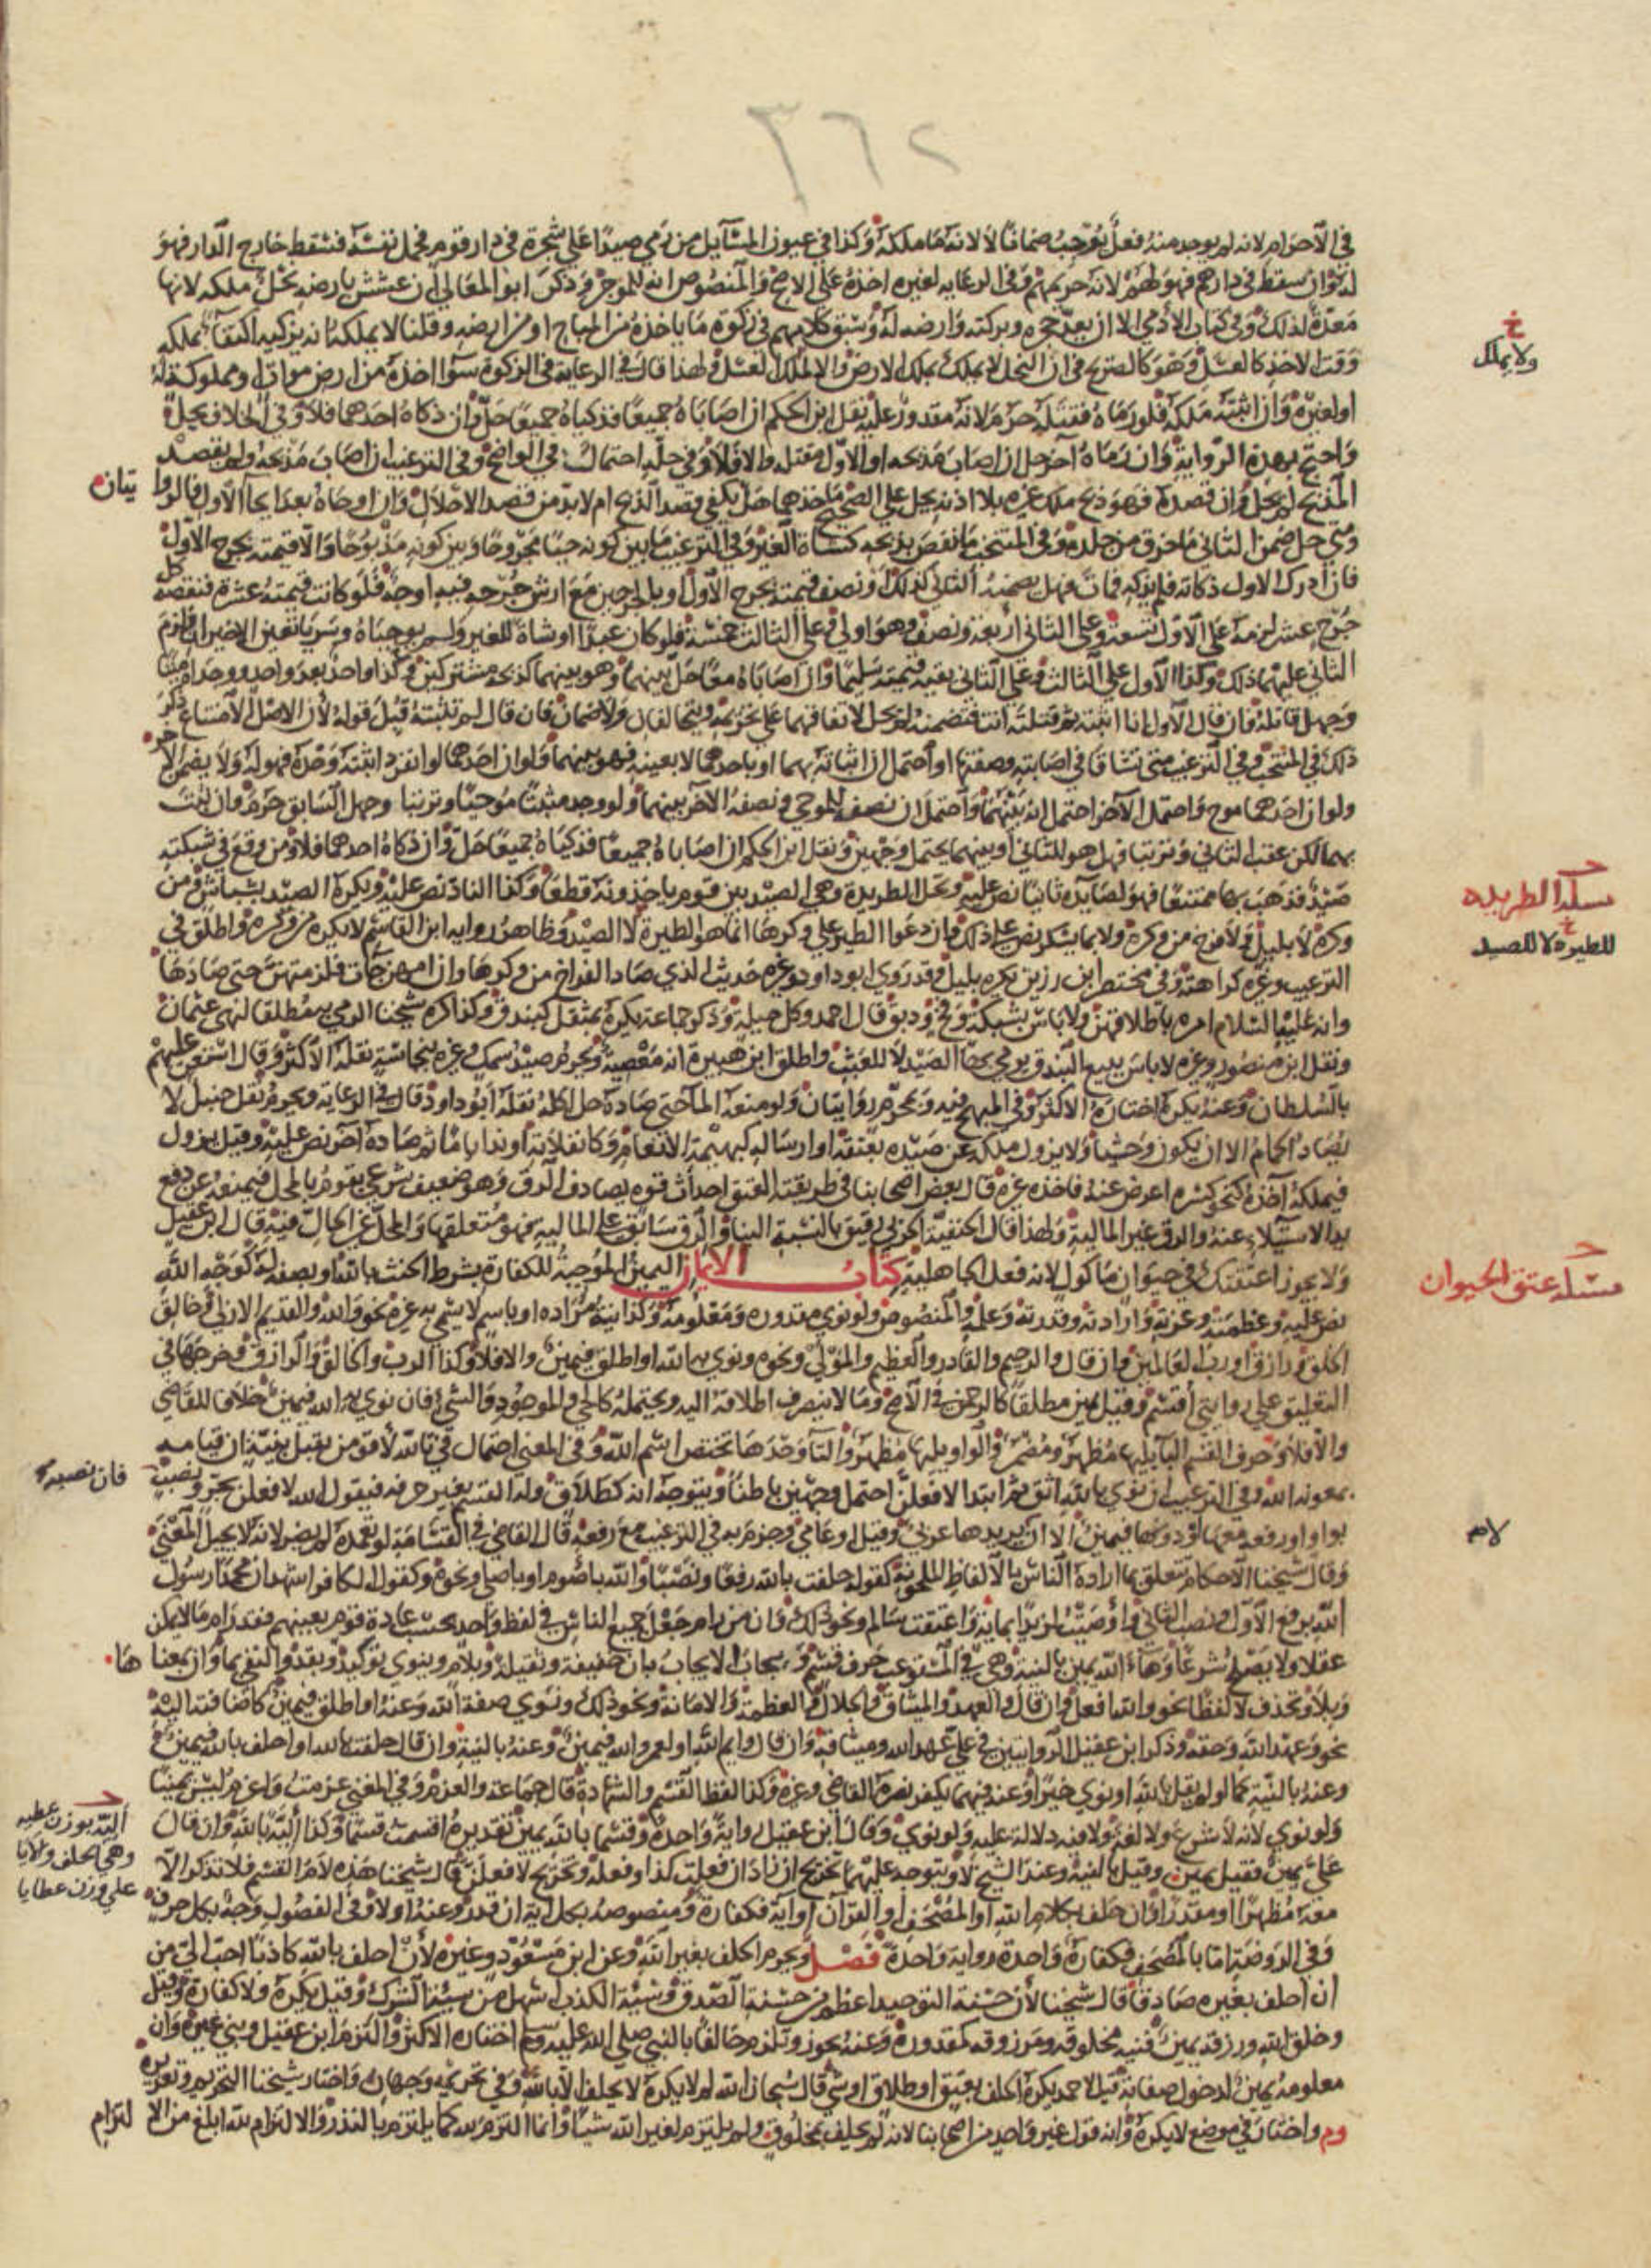 ٣٦٢
في الاحرام لانه لم يوجد منه فعل يوجب ضمانا لا لانه ما ملكه وكذا في عيون المسآيل من رمي صيدا على شجرة في دار قوم فحمل نفسه فسقط خارج الدار فهو
له وان سقط في دارهم فهو لهم لانه حريمهم وفي الرعايه لغيره اخذه على الاصح والمنصوص انه للموجر وذكر ابو المعالي ان عشش بارضه نحل ملكه لانها
معدة لذلك وفي كتاب الادمي الا ان يعد حجره وبركته وارضه له وسبق كلامهم في زكوة ما ياخذه من المباح او من ارضه وقلنا لا يملكه انه يزكيه اكتفاء بملكه
وقت الاخذ كالعسل وهو كالصريح في ان النحل لا يملك بملك الارض والا لملك العسل ولهذا قال في الرعاية في الزكوة سوا اخذه من ارض موات او مملوكة له
او لغيره وان اثبته ملكه فلو رماه فقتله حرم لانه مقدور عليه نقل ابن الحكم ان اصاباه جميعا فذكياه جميعا حل وان ذكاه احدهما فلا وفي الخلاف يحل
واحتج بهذه الرواية وان رماه آخر حل ان اصاب مذبحه او الاول مقتله والا فلا وفي حله احتمال في الواضح وفي الترغيب ان اصاب مذبحه ولم يقصد
الذبح لم يحل وان قصده فهو ذبح ملك غيره بلا اذنه يحل على الصحيح ماخذهما هل يكفي قصد الذبح ام لا بد من قصد الاحلال وان اوحاه بعد ايحا الاول فالروايتان
ومتى حل ضمن الثاني ما خرق من جلده وفي المنتخب ما نقص بذبحه كشاة الغير وفي الترغيب ما بين كونه حيا مجروحا وبين كونه مذبوحا والا قيمته بجرح الاول
فان ادرك الاول ذكاته فلم يذكه فمات فهل يضمنه الثاني كذلك او نصف قيمته بجرح الاول او بالجرحين مع ارش جرحه فيه اوجه فلو كانت قيمته عشرة فنقصه كل
جرح عشر لزمه على الاول تسعة وعلى الثاني اربعة ونصف وهو اولى وعلى الثالث خمسة فلو كان عبدا او شاة للغير ولم يوجياه وسريا تعين الاخيران فلزم
الثاني عليهما ذلك وكذا الاول على الثالث وعلى الثاني بقية قيمته سليما وان اصاباه معا حل بينهما وهو بينهما كذبحه مشتركين وكذا واحد بعد واحد ووجداه ميتا
وجهل قاتله فان قال الاول انا اثبته ثم قتلته انت فتضمنه لم يحل لاتفاقهما على تحريمه ويتحالفان ولا ضمان فان قال لم تثبته قبل قوله لان الاصل الامتناع ذكر
ذلك في المنتخب وفي الترغيب متى تشاقا في اصابته وصفتها او احتمل ان اثباته بهما او باحدهما لا بعينه فهو بينهما ولو ان احدهما لو انفرد اثبته وحده فهو له ولا يضمن الآخر
ولو ان احدهما موح واحتمل الآخر احتمل انه بينهما واحتمل ان نصفه للموحي ونصفه الاخر بينهما ولو وجد مثبتا موحيا وترتبا وجهل السابق حرم وان ثبت
بهما لكن عقب الثاني وترتبا فهل هو للثاني او بينهما يحتمل وجهين ونقل ابن الحكم ان اصاباه جميعا فذكياه جميعا حل وان ذكاه احدهما فلا ومن وقع في شبكته
صيد فذهب بها ممتنعا فهو لصايده ثانيا نص عليه وتحل الطريدة وهي الصيد بين قوم ياخذونه قطعا وكذا الناد نص عليه ويكره الصيد بشباش ومن
وكره لا بليل ولا فرخ من وكره ولا بما يسكر نص على ذلك فان دعوا الطير على وكرها انما هو للطيرة لا الصيد وظاهر روايه ابن القاسم لا يكره من وكره واطلق في
الترغيب وغيره كراهته وفي مختصر ابن رزين يكره بليل وقد روى ابو داود وغيره حديث الذي صاد الفراخ من وكرها وان امهن جات فلزمتهن حتى صادها
وانه عليه السلام امره باطلاقهن ولا باس بشبكة وفخ ودبق قال احمد وكل حيلة وذكر جماعة يكره بمثقل كبندق وكذا كره شيخنا الرمي به مطلقا لنهي عثمان
ونقل ابن منصور وغيره لا باس ببيع البندق يرمي بها الصيد لا للعبث واطلق ابن هبيرة انه معصية ويحرم صيد سمك وغيره بنجاسة نقله الاكثر وقال استعن عليهم
بالسلطان وعنه يكره اختاره الاكثر وفي المبهج فيه وبمحرم روايتان ولو منعه المآ حتى صاده حل اكله نقله ابو داود قال في الرعايه ويحرم نقل حنبل لا
يصاد الحمام الا ان يكون وحشيا ولا يزول ملكه عن صيده بعتقه او ارساله كبهيمة الانعام وكانفلاته او ندا اياما ثم صاده آخر نص عليه وقيل يزول
فيملكه آخذه كنحو كسرة اعرض عنه فاخذه غيره قال بعض اصحابنا في طريقته العتق احداث قوه يصادف الرق وهو ضعيف شرعي يقوم بالمحل فيمنعه عن دفع
يد الاستيلاء عنه والرق غير المالية ولهذا قال الحنفية الحربي رقيق بالنسبة الينا والرق سابق على المالية فهو متعلقها والمحل غير الحال فيه قال ابن عقيل
ولا يجوز اعتقتك في حيوان ماكول لانه فعل الجاهلية كتاب الايمان اليمين الموجبة للكفارة بشرط الحنث بالله او بصفه له كوجه الله
نص عليه وعظمته وعزته وارادته وقدرته وعلمه والمنصوص ولو نوى مقدوره ومعلومه وكذا نية مراده او باسم لا يسمى به غيره نحو والله والقديم الازلي وخالق
الخلق ورازق او رب العالمين وان قال والرحيم والقادر والعظيم والمولى ونحوه ونوى به الله او اطلق فيمين والا فلا وكذا الرب والخالق والرازق وخرجها في
التعليق على روايتي اقسم وقيل يمين مطلقا كالرحمن في الاصح وما لا ينصرف اطلاقه اليه ويحتمله كالحي والموجود والشي فان نوى به الله فيمين خلافا للقاضي
والا فلا وحرف القسم البآ يليها مظهر ومضمر والواو يليها مظهر والتآ وحدها تختص اسم الله وفي المغني احتمال في تالله لاقومن يقبل بنيته ان قيامه
بمعونة الله وفي الترغيب ان نوى بالله اثق ثم ابتدا لافعلن احتمل وجهين باطنا ويتوجه انه كطلاق وله القسم بغير حرفه فيقول الله لافعلن بجر ونصب
بواو او رفعه معها او دونها فيمين الا ان يريدها عربي وقيل او عامي وجزم به في الترغيب مع رفعه قال القاضي في القسامة لو تعمده لم يضر لانه لا يحيل المعنى
وقال شيخنا الاحكام تتعلق بما اراده الناس بالالفاظ الملحونة كقوله حلفت بالله رفعا ونصبا والله باصوم او باصلي ونحوه وكقول الكافر اشهد ان محمدا رسول
الله برفع الاول ونصب الثاني واوصيت لزيدا بماية واعتقت سالم ونحو ذلك وان من رام جعل جميع الناس في لفظ واحد بحسب عادة قوم بعينهم فقد رام ما لا يمكن
عقلا ولا يصلح شرعا وهآء الله يمين بالنية وهي في المستوعب حرف قسم ويجاب الايجاب بان خفيفة وثقيلة وبلام وبنوني توكيد وبقد والنفي بما وان بمعناها
وبلا وتحذف لا لفظا نحو والله افعل وان قال والعهد والميثاق والجلال والعظمة والامانة ونحو ذلك ونوى صفة الله وعنه او اطلق فيمين كاضافته اليه
نحو وعهد الله وحقه وذكر ابن عقيل الروايتين في علي عهد الله وميثاقه وان قال وايم الله او لعمر الله فيمين وعنه بالنية وان قال حلفت بالله او احلف بالله فيمين
وعنه بالنية كما لو لم يقل بالله او نوى خبرا وعنه فيهما يكفر نصره القاضي وغيره وكذا لفظ القسم والشهادة قال جماعة والعزم وفي المغني عزمت واعزم ليس يمينا
ولو نوى لانه لا شرع ولا لغة ولا فيه دلالة عليه ولو نوى وقال ابن عقيل رواية واحدة وقسما بالله يمين تقديره اقسمت قسما وكذا الية بالله وان قال
علي يمين فقيل يمين وقيل بالنيه وعند الشيخ لا ويتوجه عليهما تخريج ان زاد ان فعلت كذا وفعله وتخريج لافعلن قال شيخنا هذه لام القسم فلا تذكر الا
معه مظهرا او مقدرا وان حلف بكلام الله او المصحف او القران او آية فكفارة ومنصوصه بكل اية ان قدر وعنه اولا وفي الفصول وجه بكل حرف
وفي الروضة اما بالمصحف فكفارة واحدة رواية واحدة فصل ويحرم الحلف بغير الله وعن ابن مسعود وغيره لان احلف بالله كاذبا احب الي من
ان احلف بغيره صادقا قال شيخنا لان حسنة التوحيد اعظم من حسنة الصدق وسيئة الكذب اسهل من سيئة الشرك وقيل يكره ولا كفارة وقيل
وخلق الله ورزقه يمين فنيه مخلوقه ومرزوقه كمقدوره وعنه يجوز وتلزم حالفا بالنبي صلى الله عليه وسلم اختاره الاكثر والتزم ابن عقيل وبنبي غيره وان
معلومه يمين لدخول صفاته قيل لاحمد يكره الحلف بعتق او طلاق او شي قال سبحان الله لم لا يكره لا يحلف الا بالله وفي تحريمه وجهان واختار شيخنا التحريم وتعزيره
وم واختار في موضع لا يكره وانه قول غير واحد من اصحابنا لانه لم يحلف بمخلوق ولم يلتزم لغير الله شيئا وانما التزم لله كما يلتزم بالنذر والالتزام لله ابلغ من الالتزام
خ
ولا يملك
مسئلة الطريده
خ
للطيرة لا للصيد
مسئلة عتق الحيوان
لام
فان نصبه
الية بوزن عطيه
وهي الحلف والالايا
على وزن عطايا